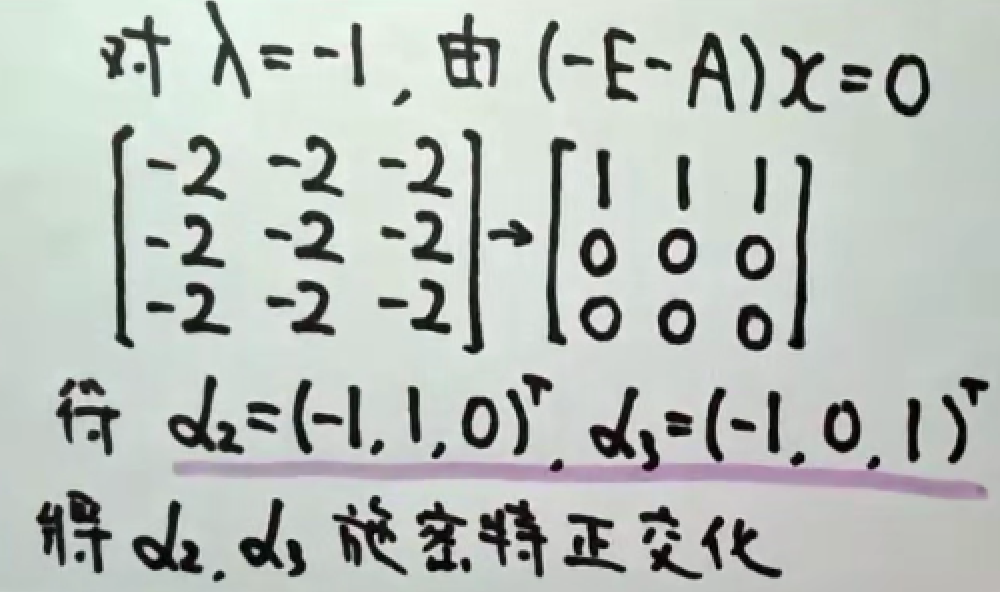 对 λ=-1, 由 (-E-A)x=0
[-2 -2 -2
-2 -2 -2
-2 -2 -2] → [1 1 1
0 0 0
0 0 0]
得 α₂=(-1,1,0)ᵀ, α₃=(-1,0,1)ᵀ
将 α₂,α₃ 施密特正交化